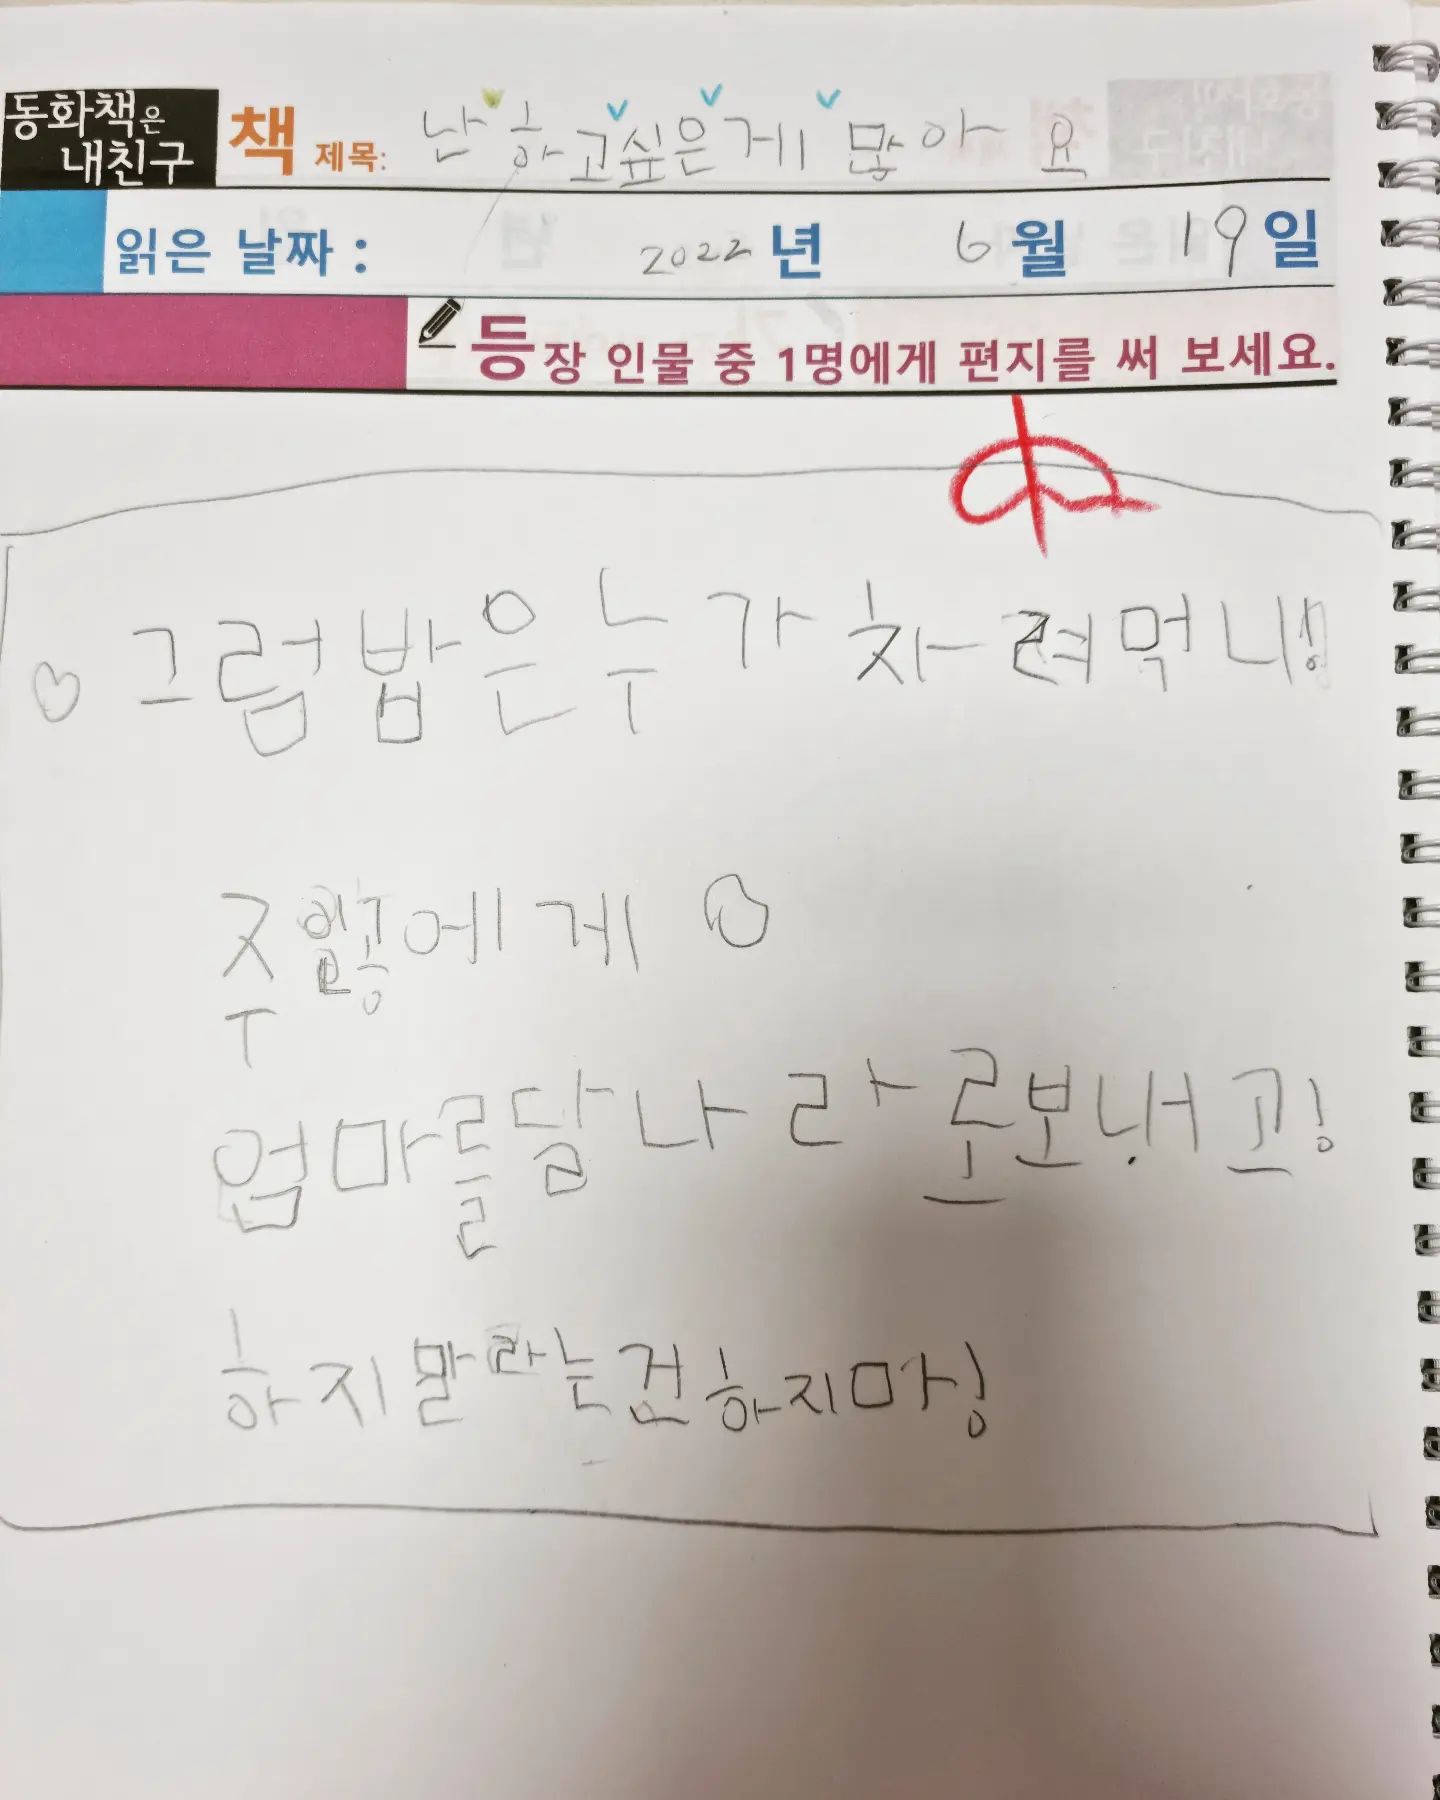 동화책은
내친구
책 제목: 난 하고싶은게 많아 요
읽은 날짜 : 2022 년 6 월 19 일
등장 인물 중 1명에게 편지를 써 보세요.
그럼밥은누가차려먹니
에게
엄마를달나라로보내고!
하지말라는건하지마!